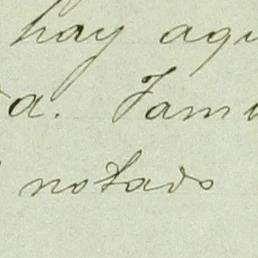 hay aqu
a. Tam
notado